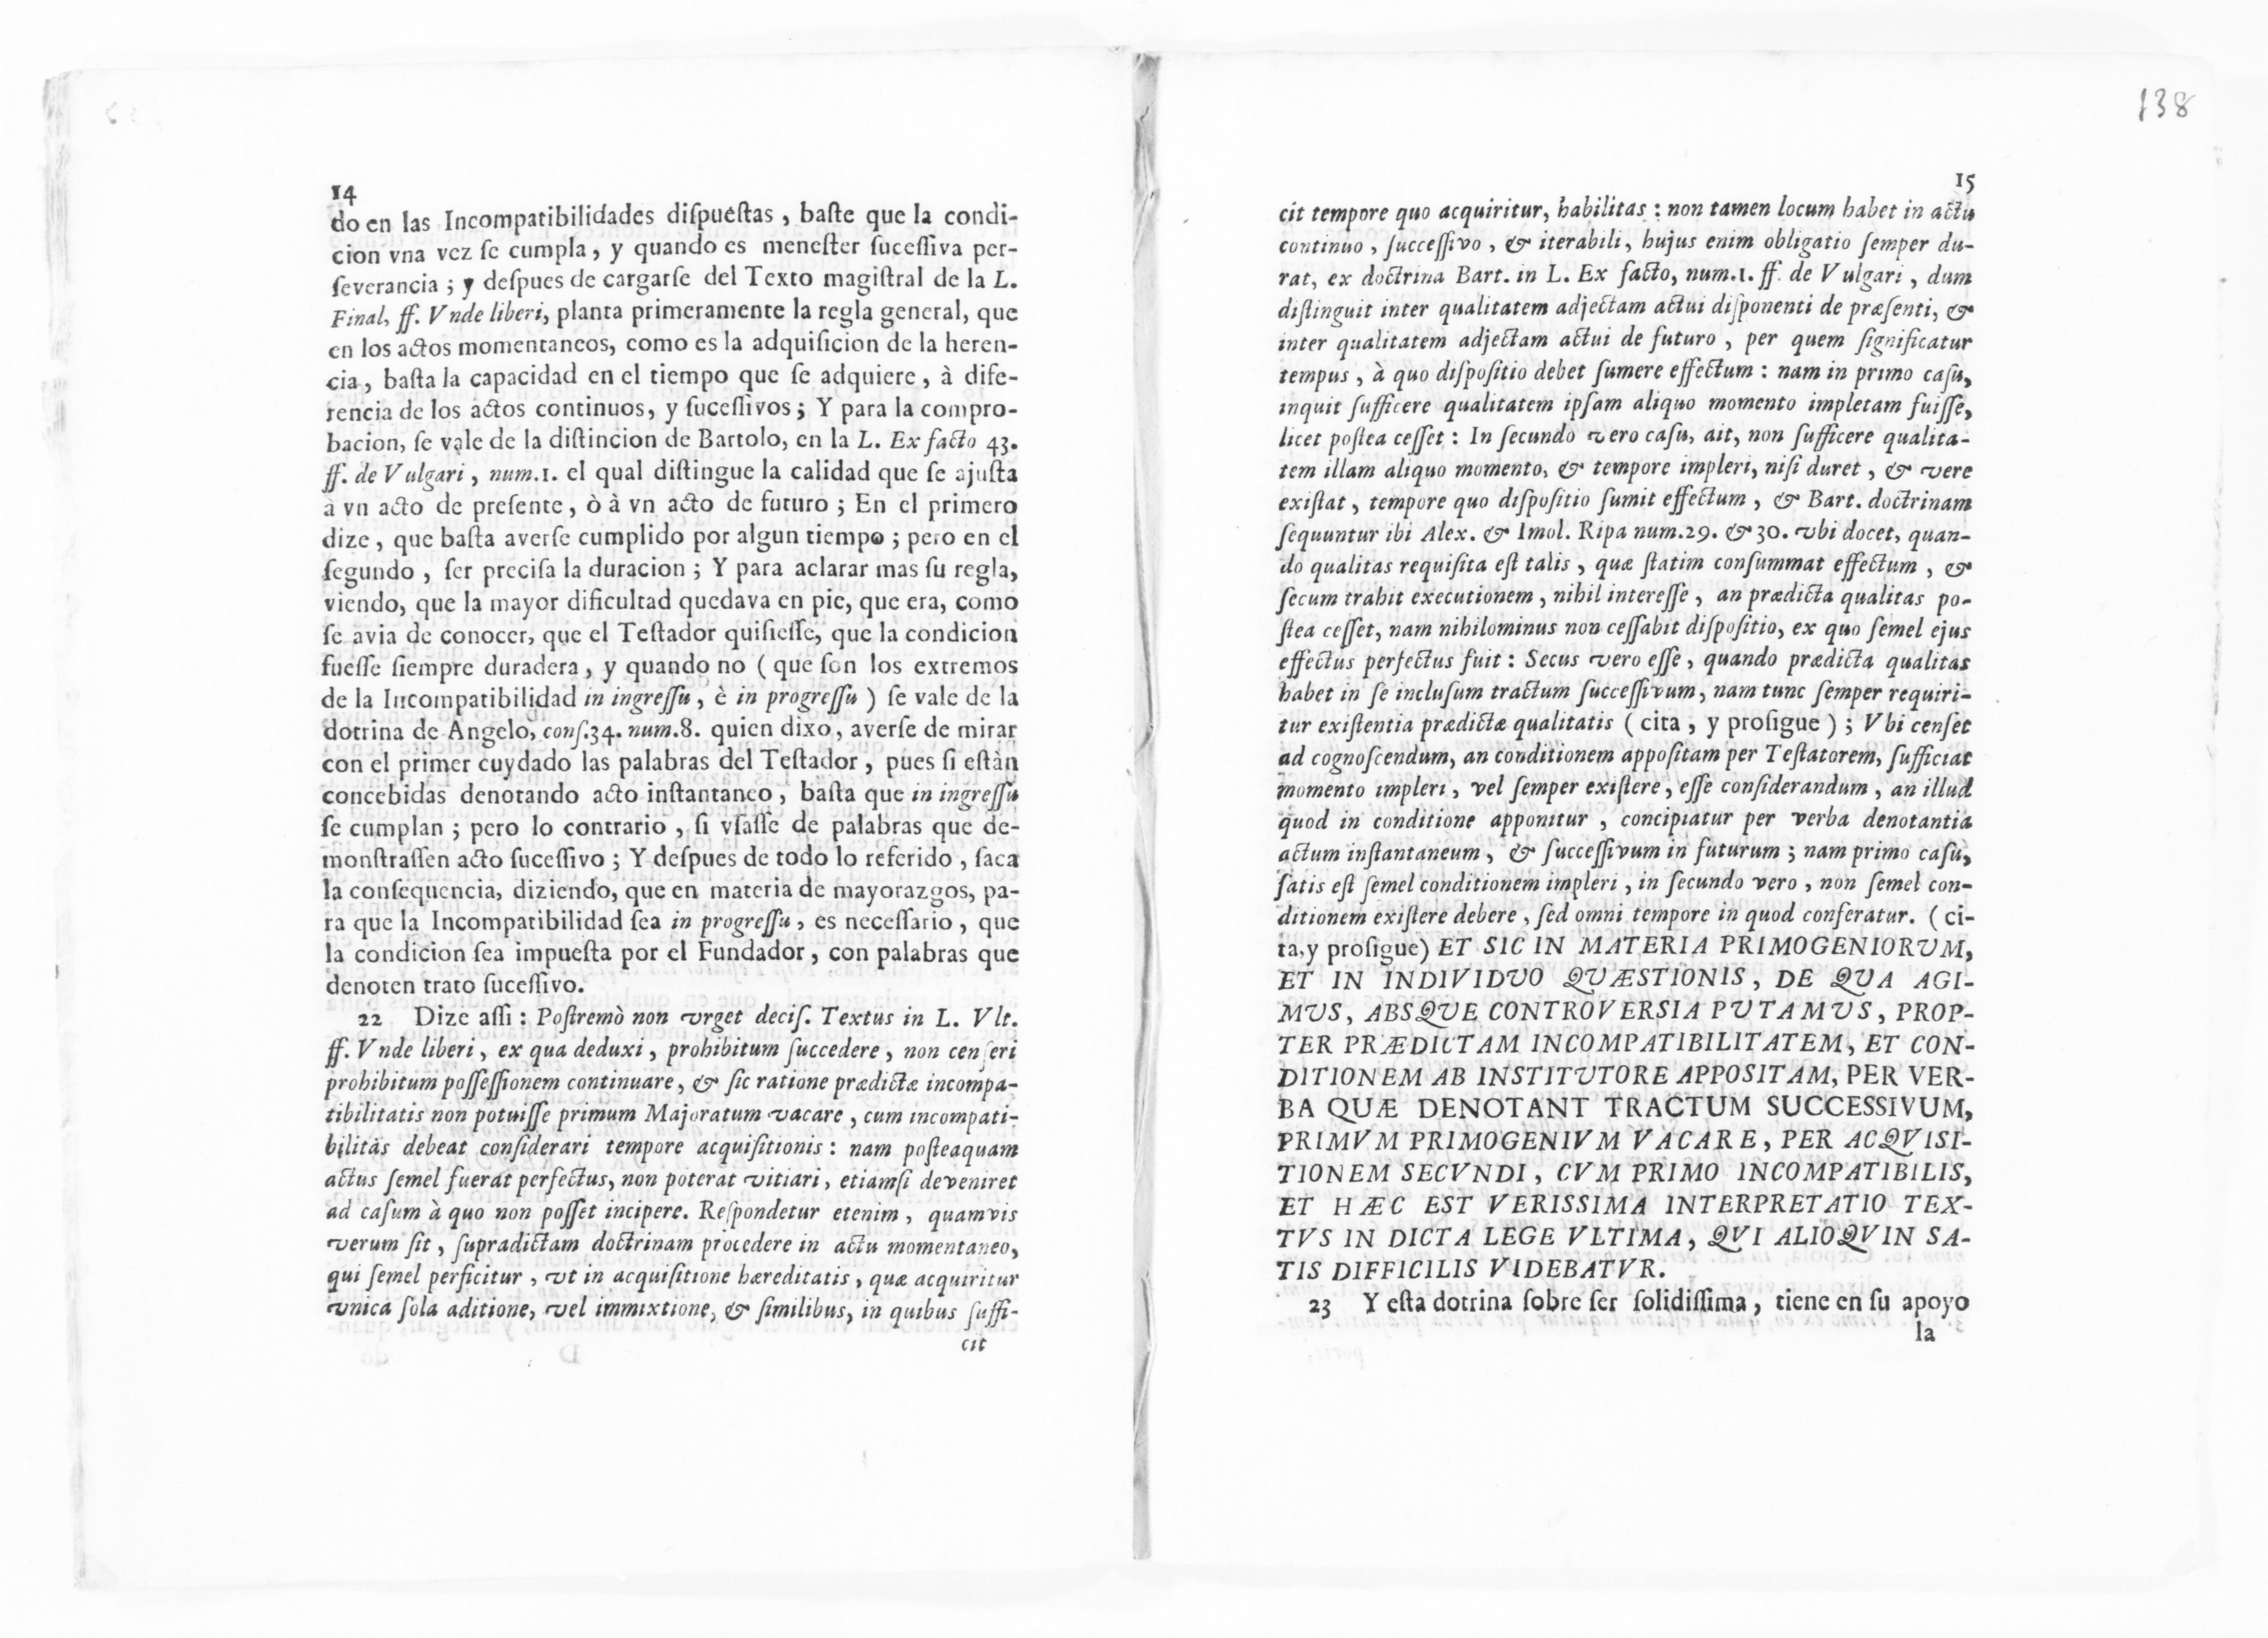 14
do en las Incompatibilidades diſpuestas, baſte que la condi-
cion vna vez ſe cumpla, y quando es meneſter ſuceſſiva per-
ſeverancia; y deſpues de cargarſe del Texto magiſtral de la L.
Final, ff. Vnde liberi, planta primeramente la regla general, que
en los actos momentaneos, como es la adquiſicion de la heren-
cia, baſta la capacidad en el tiempo que ſe adquiere, à dife-
rencia de los actos continuos, y ſuceſſivos; Y para la compro-
bacion, ſe vale de la diſtincion de Bartolo, en la L. Ex facto 43.
ff. de Vulgari, num.1. el qual diſtingue la calidad que ſe ajuſta
à vn acto de preſente, ò à vn acto de futuro; En el primero
dize, que baſta averſe cumplido por algun tiempo; pero en el
ſegundo, ſer preciſa la duracion; Y para aclarar mas ſu regla,
viendo, que la mayor dificultad quedava en pie, que era, como
ſe avia de conocer, que el Teſtador quiſieſſe, que la condicion
fueſſe ſiempre duradera, y quando no (que ſon los extremos
de la Incompatibilidad in ingreſſu, è in progreſſu) ſe vale de la
dotrina de Angelo, conſ.34. num.8. quien dixo, averſe de mirar
con el primer cuydado las palabras del Teſtador, pues ſi eſtàn
concebidas denotando acto inſtantaneo, baſta que in ingreſſu
ſe cumplan; pero lo contrario, ſi vſaſſe de palabras que de-
monſtraſſen acto ſuceſſivo; Y deſpues de todo lo referido, ſaca
la conſequencia, diziendo, que en materia de mayorazgos, pa-
ra que la Incompatibilidad ſea in progreſſu, es neceſſario, que
la condicion ſea impueſta por el Fundador, con palabras que
denoten trato ſuceſſivo.
22 Dize aſſi: Poſtremò non vrget deciſ. Textus in L. Vlt.
ff. Vnde liberi, ex qua deduxi, prohibitum ſuccedere, non cenſeri
prohibitum poſſeſſionem continuare, & ſic ratione prædictæ incompa-
tibilitatis non potuiſſe primum Majoratum vacare, cum incompati-
bilitas debeat conſiderari tempore acquiſitionis: nam poſteaquam
actus ſemel fuerat perfectus, non poterat vitiari, etiamſi deveniret
ad caſum à quo non poſſet incipere. Reſpondetur etenim, quamvis
verum ſit, ſupradictam doctrinam procedere in actu momentaneo,
qui ſemel perficitur, vt in acquiſitione hæreditatis, quæ acquiritur
vnica ſola aditione, vel immixtione, & ſimilibus, in quibus ſuffi-
cit
138
15
cit tempore quo acquiritur, habilitas: non tamen locum habet in actu
continuo, ſucceſſivo, & iterabili, hujus enim obligatio ſemper du-
rat, ex doctrina Bart. in L. Ex facto, num.1. ff. de Vulgari, dum
diſtinguit inter qualitatem adjectam actui diſponenti de præſenti, &
inter qualitatem adjectam actui de futuro, per quem ſignificatur
tempus, à quo diſpoſitio debet ſumere effectum: nam in primo caſu,
inquit ſufficere qualitatem ipſam aliquo momento impletam fuiſſe,
licet poſtea ceſſet: In ſecundo vero caſu, ait, non ſufficere qualita-
tem illam aliquo momento, & tempore impleri, niſi duret, & vere
exiſtat, tempore quo diſpoſitio ſumit effectum, & Bart. doctrinam
ſequuntur ibi Alex. & Imol. Ripa num.29. & 30. vbi docet, quan-
do qualitas requiſita eſt talis, quæ ſtatim conſummat effectum, &
ſecum trahit executionem, nihil intereſſe, an prædicta qualitas po-
ſtea ceſſet, nam nihilominus non ceſſabit diſpoſitio, ex quo ſemel ejus
effectus perfectus fuit: Secus vero eſſe, quando prædicta qualitas
habet in ſe incluſum tractum ſucceſſivum, nam tunc ſemper requiri-
tur exiſtentia prædictæ qualitatis (cita, y proſigue); Vbi cenſet
ad cognoſcendum, an conditionem appoſitam per Teſtatorem, ſufficiat
momento impleri, vel ſemper exiſtere, eſſe conſiderandum, an illud
quod in conditione apponitur, concipiatur per verba denotantia
actum inſtantaneum, & ſucceſſivum in futurum; nam primo caſu,
ſatis eſt ſemel conditionem impleri, in ſecundo vero, non ſemel con-
ditionem exiſtere debere, ſed omni tempore in quod conferatur. (ci-
ta, y proſigue) ET SIC IN MATERIA PRIMOGENIORVM,
ET IN INDIVIDVO QUÆSTIONIS, DE QUA AGI-
MVS, ABSQVE CONTROVERSIA PVTAMVS, PROP-
TER PRÆDICTAM INCOMPATIBILITATEM, ET CON-
DITIONEM AB INSTITVTORE APPOSITAM, PER VER-
BA QUÆ DENOTANT TRACTUM SUCCESSIVUM,
PRIMVM PRIMOGENIVM VACARE, PER ACQVISI-
TIONEM SECVNDI, CVM PRIMO INCOMPATIBILIS,
ET HÆC EST VERISSIMA INTERPRETATIO TEX-
TVS IN DICTA LEGE VLTIMA, QVI ALIOQVIN SA-
TIS DIFFICILIS VIDEBATVR.
23 Y eſta dotrina ſobre ſer ſolidiſſima, tiene en ſu apoyo
la